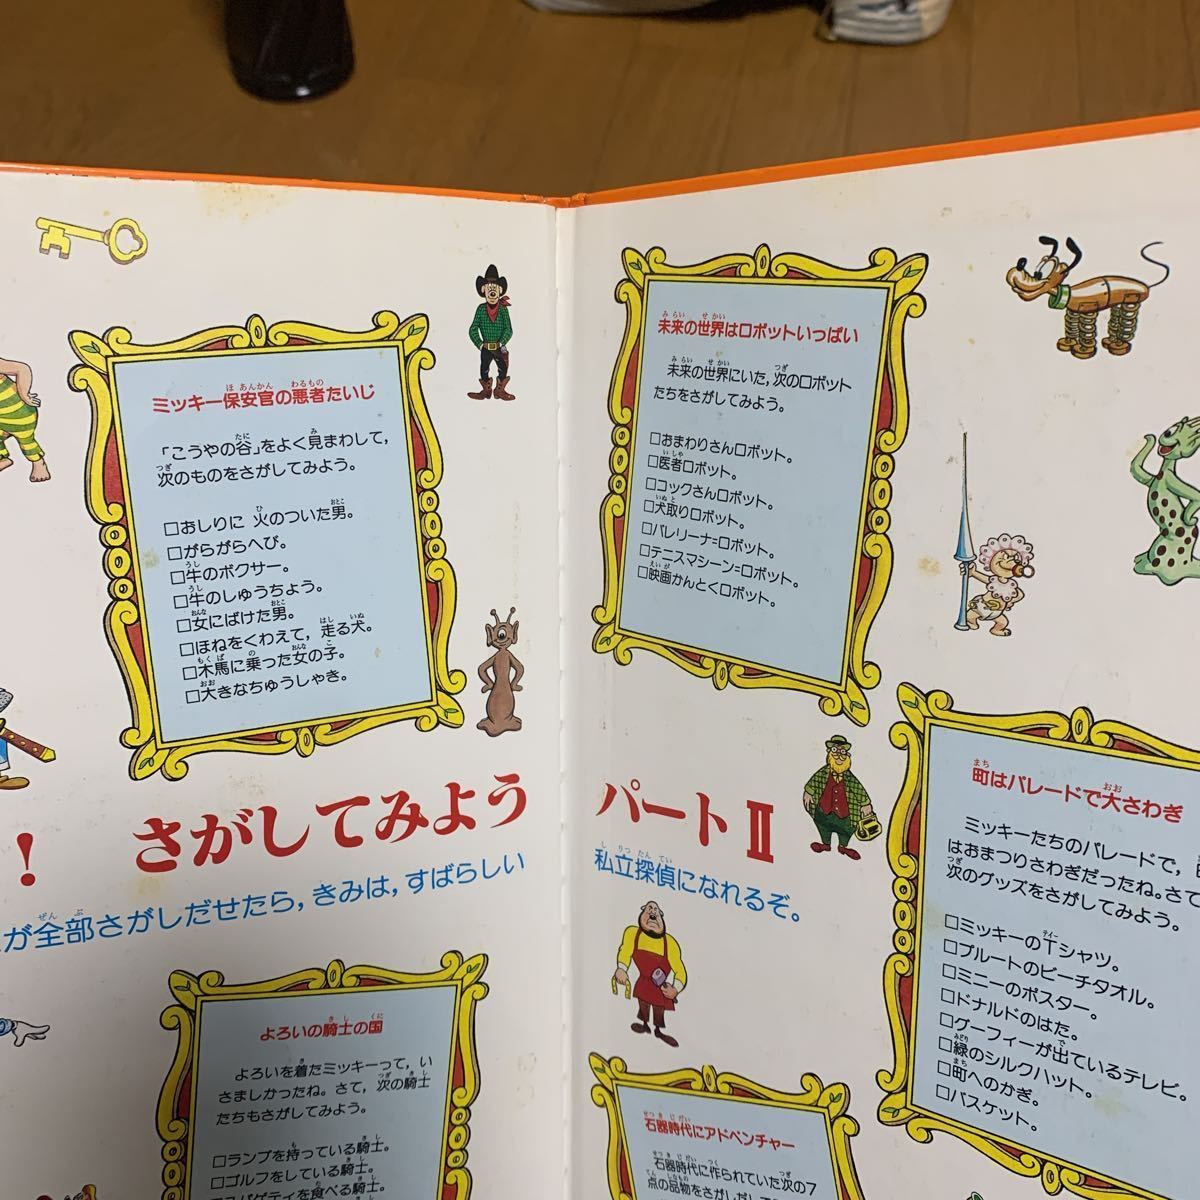 ミッキー保安官の悪者たいじ
「こうやの谷」をよく見まわして,
次のものをさがしてみよう。
□おしりに 火のついた男。
□がらがらへび。
□牛のボクサー。
□牛のしゅうちょう。
□女にばけた男。
□ほねをくわえて, 走る犬。
□木馬に乗った女の子。
□大きなちゅうしゃき。
未来の世界はロボットいっぱい
未来の世界にいた, 次のロボット
たちをさがしてみよう。
□おまわりさんロボット。
□医者ロボット。
□コックさんロボット。
□犬取りロボット。
□バレリーナ=ロボット。
□テニスマシーン=ロボット。
□映画かんとくロボット。
! さがしてみよう パートⅡ
が全部さがしだせたら, きみは, すばらしい 私立探偵になれるぞ。
町はパレードで大さわぎ
ミッキーたちのパレードで,
はおまつりさわぎだったね。さて
次のグッズをさがしてみよう。
□ミッキーのTシャツ。
□プルートのビーチタオル。
□ミニーのポスター。
□ドナルドのはた。
□グーフィーが出ているテレビ。
□緑のシルクハット。
□町へのかぎ。
□バスケット。
よろいの騎士の国
よろいを着たミッキーって, い
さましかったね。さて, 次の騎士
たちもさがしてみよう。
□ランプを持っている騎士。
□ゴルフをしている騎士。
□スパゲティを食べる騎士。
石器時代にアドベンチャー
石器時代に作られていた次の7
点の品物をさがしだして